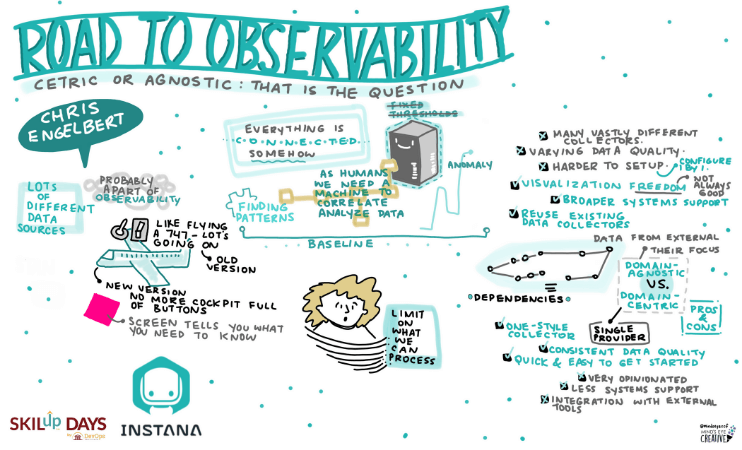 ROAD TO OBSERVABILITY
CETRIC OR AGNOSTIC: THAT IS THE QUESTION
CHRIS
ENGELBERT
LOTS
OF
DIFFERENT
DATA
SOURCES
PROBABLY
A PART OF
OBSERVABILITY
LIKE FLYING
A 747 - LOTS
GOING ON
OLD
VERSION
NEW VERSION
NO MORE COCKPIT FULL
OF BUTTONS
SCREEN TELLS YOU WHAT
YOU NEED TO KNOW
EVERYTHING IS
CONNECTED
SOMEHOW
FIXED
THRESHOLDS
AS HUMANS
WE NEED A
MACHINE TO
CORRELATE
ANALYZE DATA
FINDING
PATTERNS
ANOMALY
BASELINE
LIMIT
ON
WHAT
WE
CAN
PROCESS
MANY VASTLY DIFFERENT
COLLECTORS.
VARYING DATA QUALITY.
HARDER TO SETUP.
CONFIGURE
1 BY 1.
VISUALIZATION FREEDOM
NOT
ALWAYS
GOOD
BROADER SYSTEMS SUPPORT
REUSE EXISTING
DATA COLLECTORS
DATA FROM EXTERNAL
THEIR FOCUS
DOMAIN-
AGNOSTIC
VS.
DOMAIN-
CENTRIC
PROS
&
CONS
DEPENDENCIES
SINGLE
PROVIDER
ONE-STYLE
COLLECTOR
CONSISTENT DATA QUALITY
QUICK & EASY TO GET STARTED
VERY OPINIONATED
LESS SYSTEMS SUPPORT
INTEGRATION WITH EXTERNAL
TOOLS
SKILup DAYS
DevOps
INSTANA
MIND'S EYE
CREATIVE